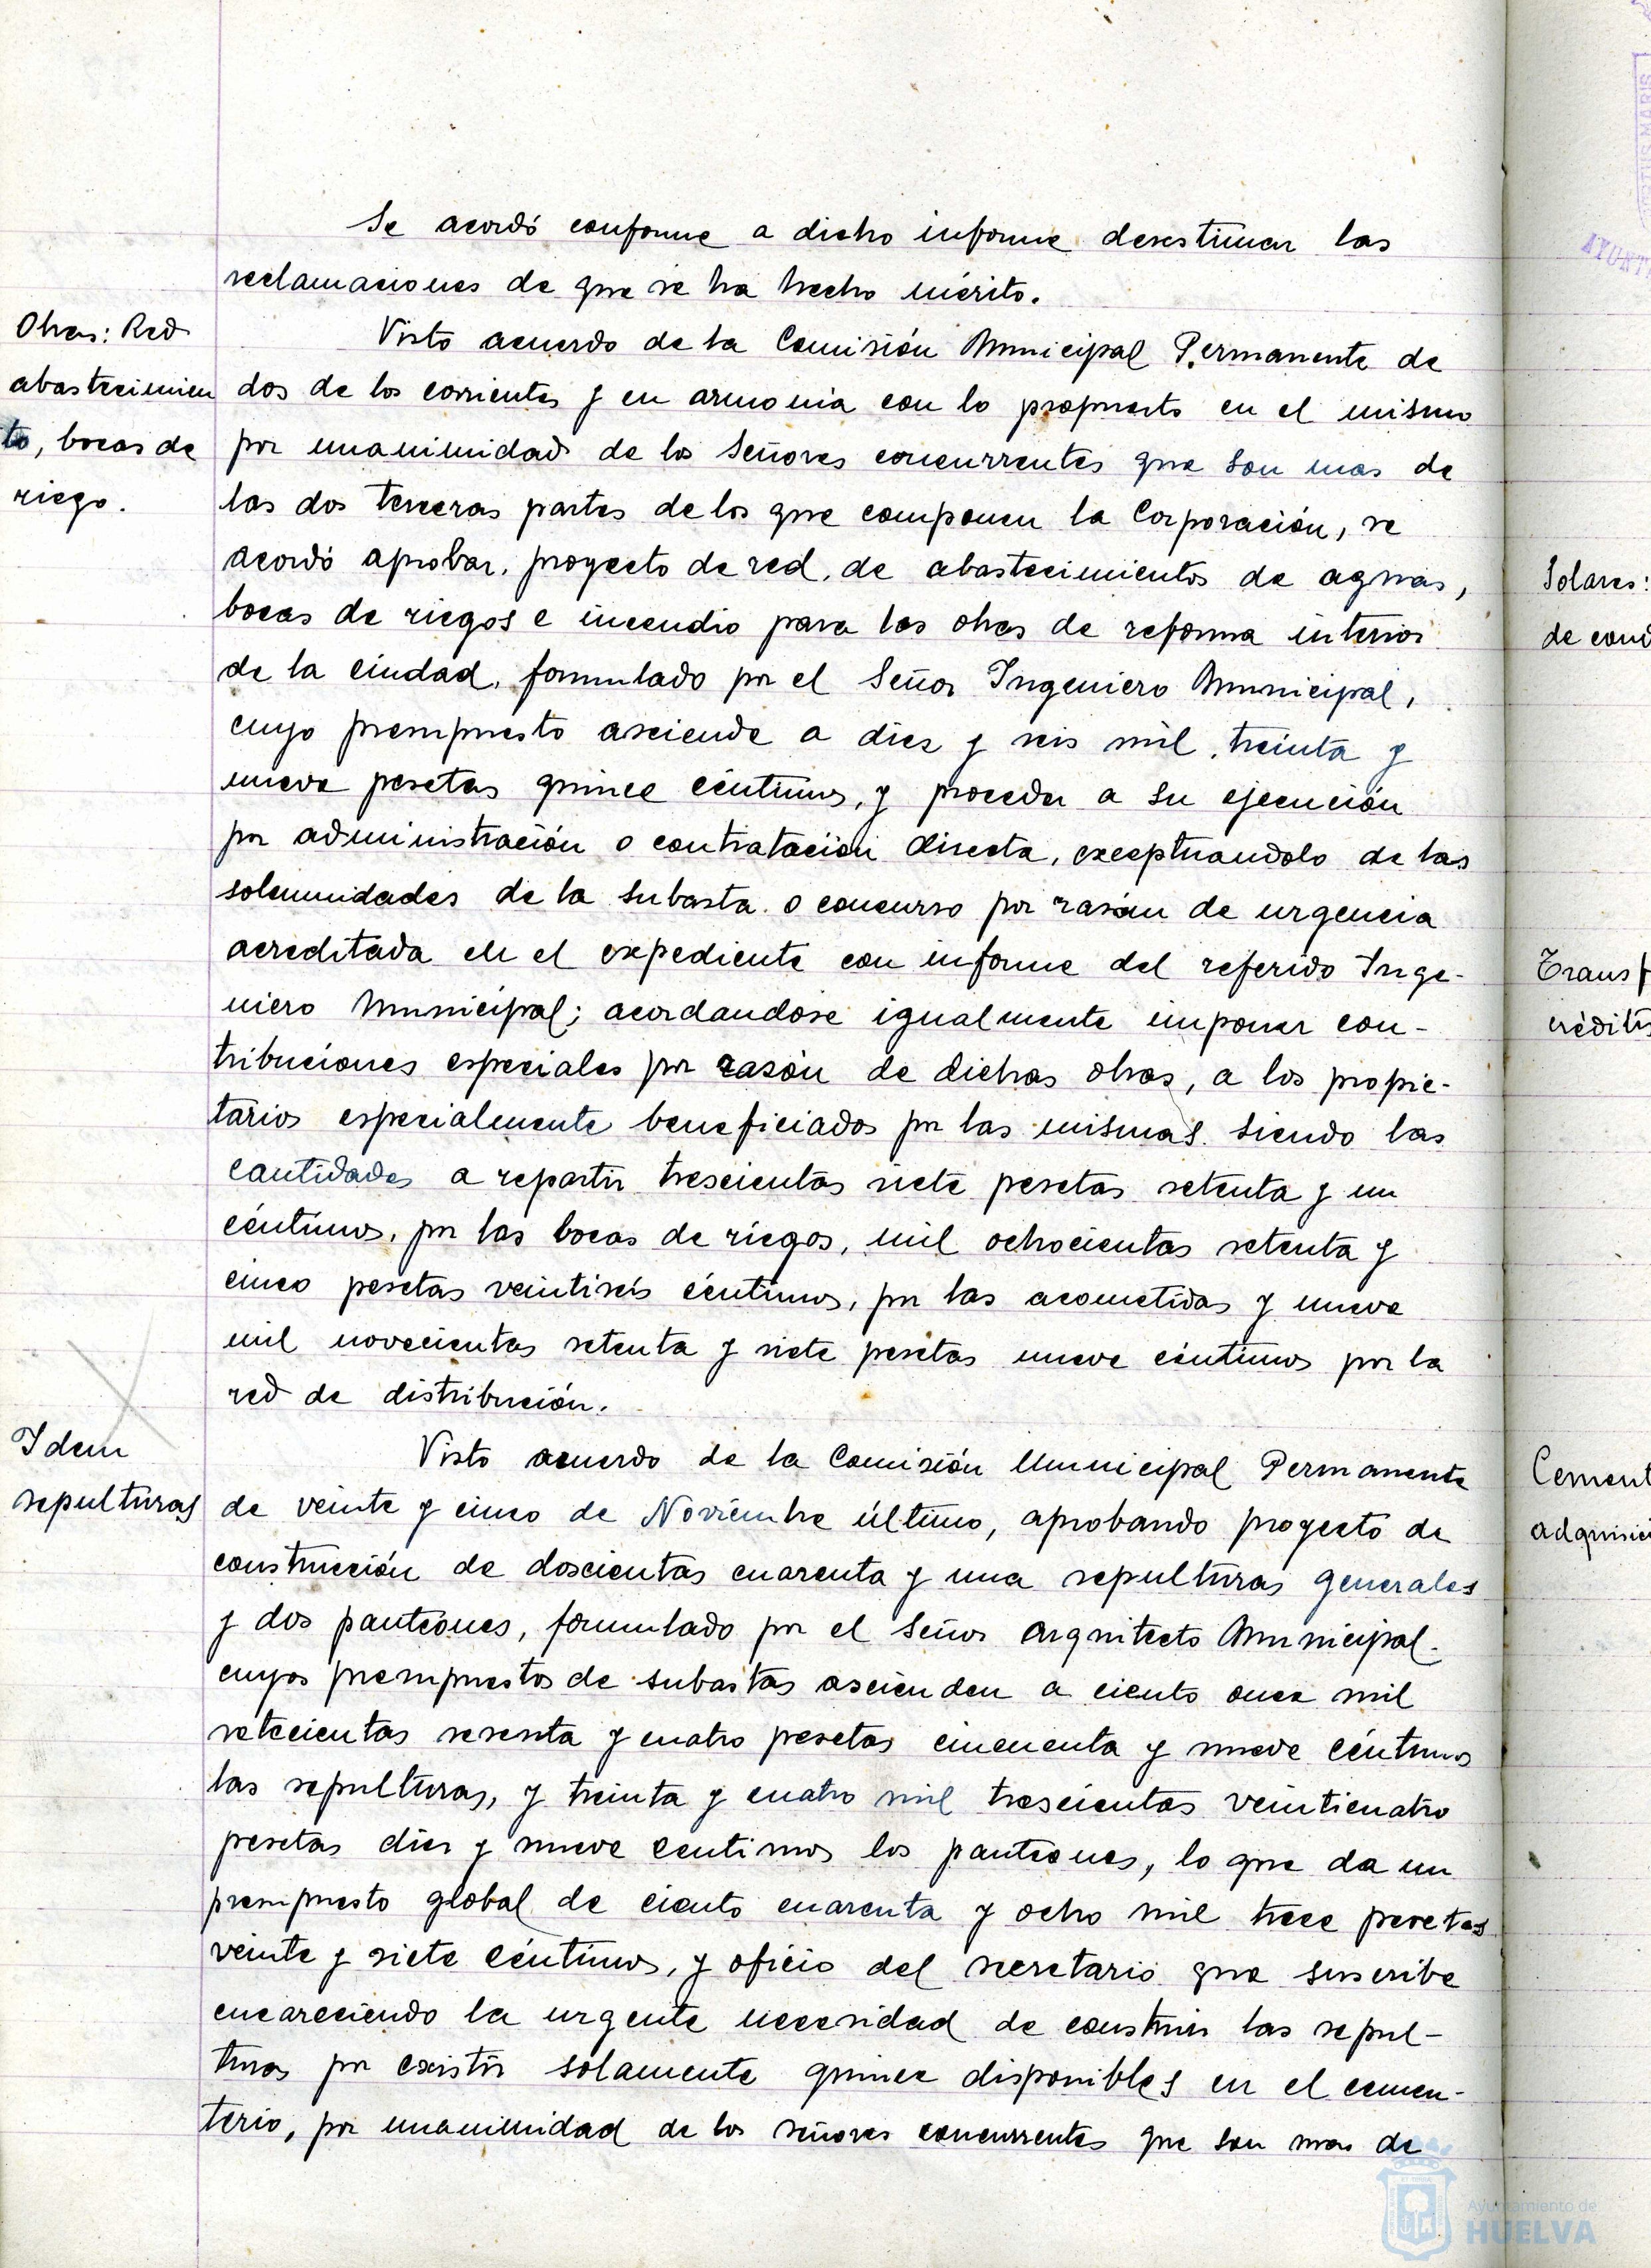 Se acordó conforme a dicho informe desestimar las
reclamaciones de que se ha hecho mérito.
Obras: Red
abastecimien
to, bocas de
riego.
Visto acuerdo de la Comisión Municipal Permanente de
dos de los corrientes y en armonia con lo propuesto en el mismo
por unanimidad de los Señores concurrentes que son mas de
las dos terceras partes de los que componen la Corporación, se
acordó aprobar, proyecto de red, de abastecimientos de aguas,
bocas de riegos e incendio para las obras de reforma interior
de la Ciudad, formulado por el Señor Ingeniero Municipal,
cuyo presupuesto asciende a diez y seis mil, treinta y
nueve pesetas quince céntimos, y proceder a su ejecución
por administración o contratación directa, exceptuandolo de las
solemnidades de la subasta o concurso por razón de urgencia
acreditada en el expediente con informe del referido Inge-
niero Municipal; acordandose igualmente imponer con-
tribuciones especiales por razón de dichas obras, a los propie-
tarios especialmente beneficiados por las mismas siendo las
cantidades a repartir trescientas siete pesetas setenta y un
céntimos, por las bocas de riegos, mil ochocientas setenta y
cinco pesetas veintiseis céntimos, por las acometidas y nueve
mil novecientas setenta y siete pesetas nueve céntimos por la
red de distribución.
Idem
sepulturas
Visto acuerdo de la Comisión Municipal Permanente
de veinte y cinco de Noviembre último, aprobando proyecto de
construcción de doscientas cuarenta y una sepulturas generales
y dos panteones, formulado por el Señor Arquitecto Municipal.
cuyos presupuestos de subastas ascienden a ciento once mil
setecientas sesenta y cuatro pesetas cincuenta y nueve céntimos
las sepulturas, y treinta y cuatro mil trescientas veinticuatro
pesetas diez y nueve centimos los panteones, lo que da un
presupuesto global de ciento cuarenta y ocho mil trece pesetas
veinte y siete céntimos, y oficio del secretario que suscribe
encareciendo la urgente necesidad de construir las sepul-
turas por existir solamente quince disponibles en el cemen-
terio, por unanimidad de los señores concurrentes que son mas de
Solares:
de cond
Transf
crédito
Cement
adquisici
AYUNT
Ayuntamiento de
HUELVA